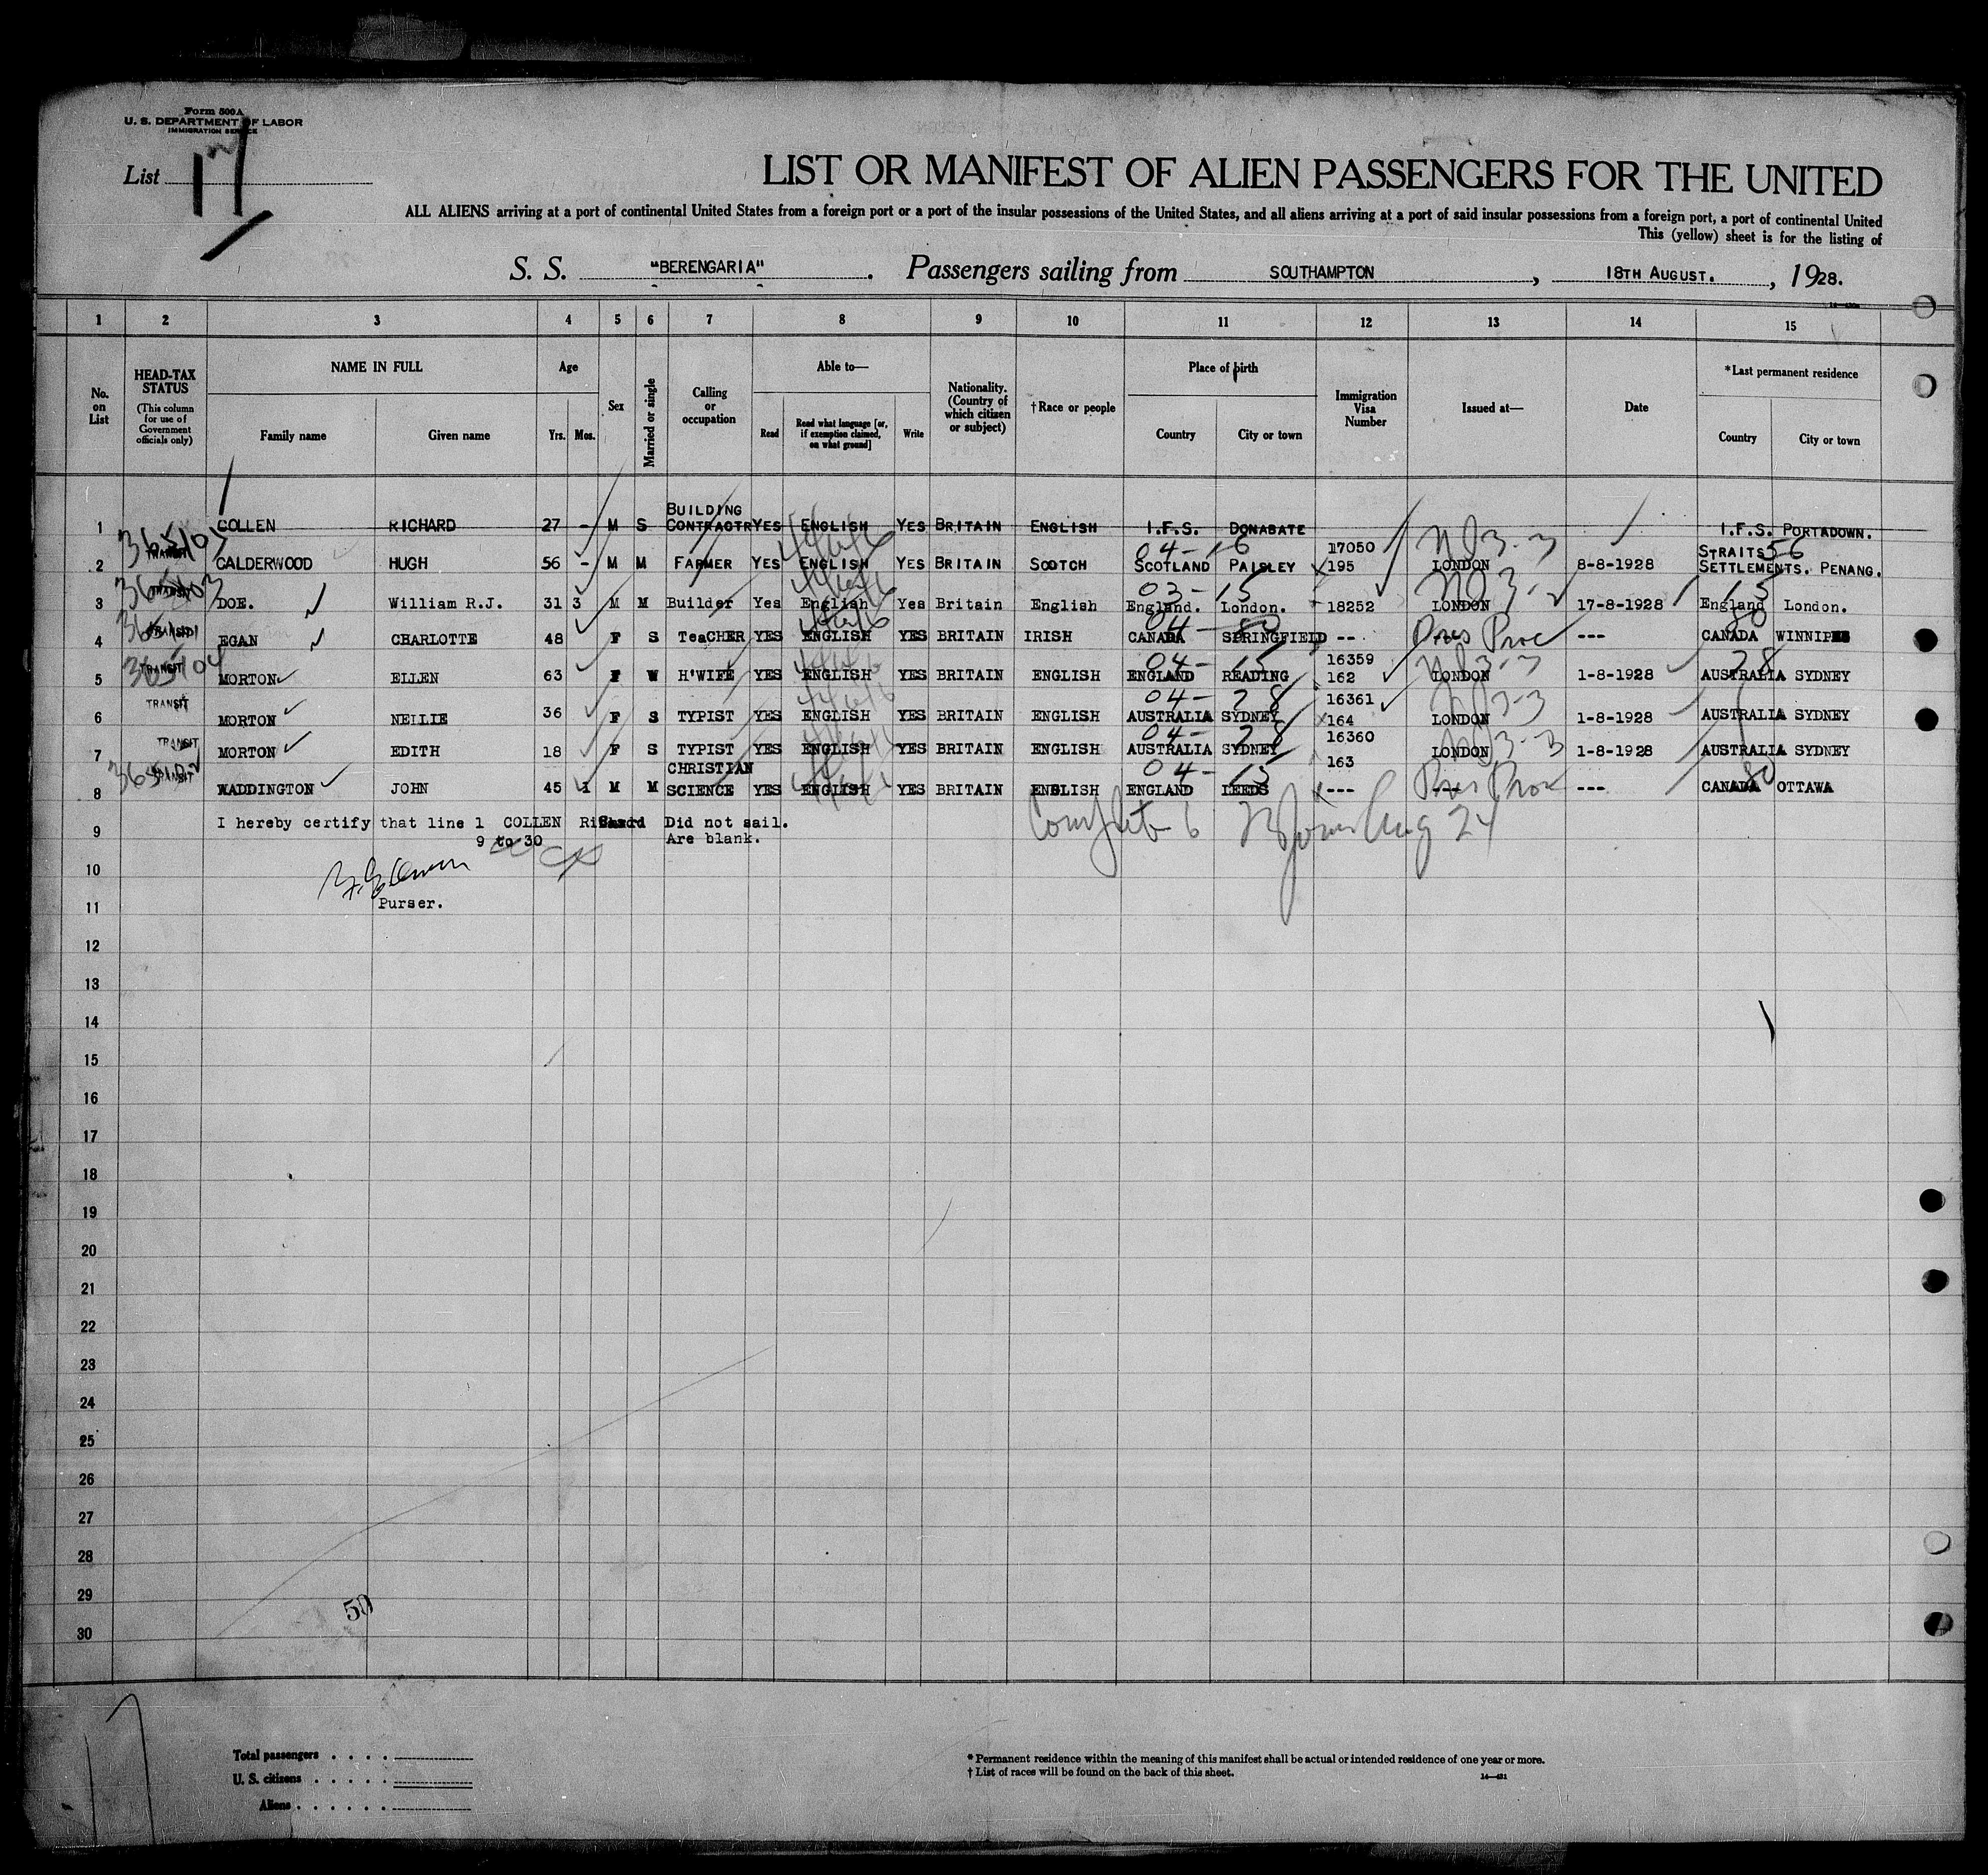 Form 500A
U. S. DEPARTMENT OF LABOR
IMMIGRATION SERVICE
List 17
LIST OR MANIFEST OF ALIEN PASSENGERS FOR THE UNITED
ALL ALIENS arriving at a port of continental United States from a foreign port or a port of the insular possessions of the United States, and all aliens arriving at a port of said insular possessions from a foreign port, a port of continental United
This (yellow) sheet is for the listing of
S. S. "BERENGARIA". Passengers sailing from SOUTHAMPTON, 18TH AUGUST., 1928.
1 2 3 4 5 6 7 8 9 10 11 12 13 14 15
No. on List
HEAD-TAX STATUS (This column for use of Government officials only)
NAME IN FULL
Family name Given name
Age
Yrs. Mos.
Sex
Married or single
Calling or occupation
Able to—
Read Read what language [or, if exemption claimed, on what ground] Write
Nationality. (Country of which citizen or subject)
†Race or people
Place of birth
Country City or town
Immigration Visa Number
Issued at—
Date
*Last permanent residence
Country City or town
1 COLLEN RICHARD 27 - M S BUILDING CONTRACTR YES ENGLISH YES BRITAIN ENGLISH I.F.S. DONABATE I.F.S. PORTADOWN.
2 TRANSIT CALDERWOOD HUGH 56 - M M FARMER YES ENGLISH YES BRITAIN SCOTCH 04-16 SCOTLAND PAISLEY 17050 195 LONDON 8-8-1928 STRAITS 56 SETTLEMENTS. PENANG.
3 TRANSIT DOE. William R.J. 31 3 M M Builder Yes English Yes Britain English 03-15 England. London. 18252 LONDON 17-8-1928 15 England London.
4 TRANSIT EGAN CHARLOTTE 48 F S TEACHER YES ENGLISH YES BRITAIN IRISH 04-80 CANADA SPRINGFIELD -- --- 80 CANADA WINNIPEG
5 TRANSIT MORTON ELLEN 63 F W H'WIFE YES ENGLISH YES BRITAIN ENGLISH 04-15 ENGLAND READING 16359 162 LONDON 1-8-1928 28 AUSTRALIA SYDNEY
6 TRANSIT MORTON NELLIE 36 F S TYPIST YES ENGLISH YES BRITAIN ENGLISH 04-28 AUSTRALIA SYDNEY 16361 164 LONDON 1-8-1928 AUSTRALIA SYDNEY
7 TRANSIT MORTON EDITH 18 F S TYPIST YES ENGLISH YES BRITAIN ENGLISH 04-28 AUSTRALIA SYDNEY 16360 163 LONDON 1-8-1928 AUSTRALIA SYDNEY
8 TRANSIT WADDINGTON JOHN 45 1 M M CHRISTIAN SCIENCE YES ENGLISH YES BRITAIN ENGLISH 04-15 ENGLAND LEEDS --- --- --- 80 CANADA OTTAWA
9 I hereby certify that line 1 COLLEN Richard Did not sail.
9 to 30 Are blank.
10
Purser.
11
12
13
14
15
16
17
18
19
20
21
22
23
24
25
26
27
28
29
50
30
Total passengers
U. S. citizens
Aliens
* Permanent residence within the meaning of this manifest shall be actual or intended residence of one year or more.
† List of races will be found on the back of this sheet.
14—431